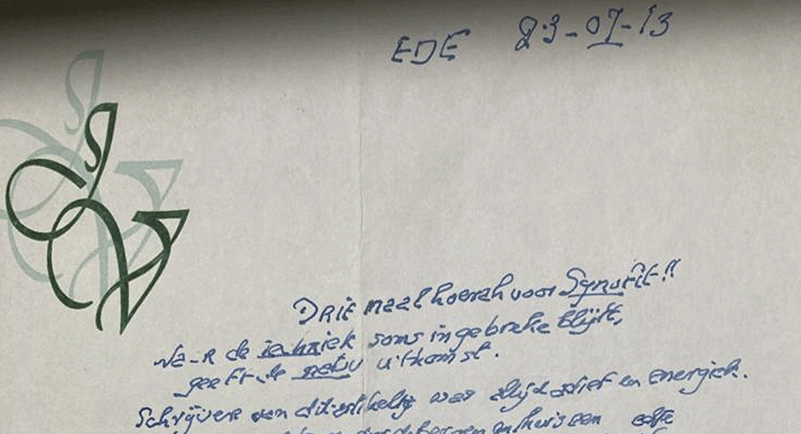 EDE 23-07-13
DRIE maal hoerah voor Synofit!!
Waar de techniek soms in gebreke blijft,
geeft de natuur uitkomst.
Schrijver van dit was altijd actief en energiek.